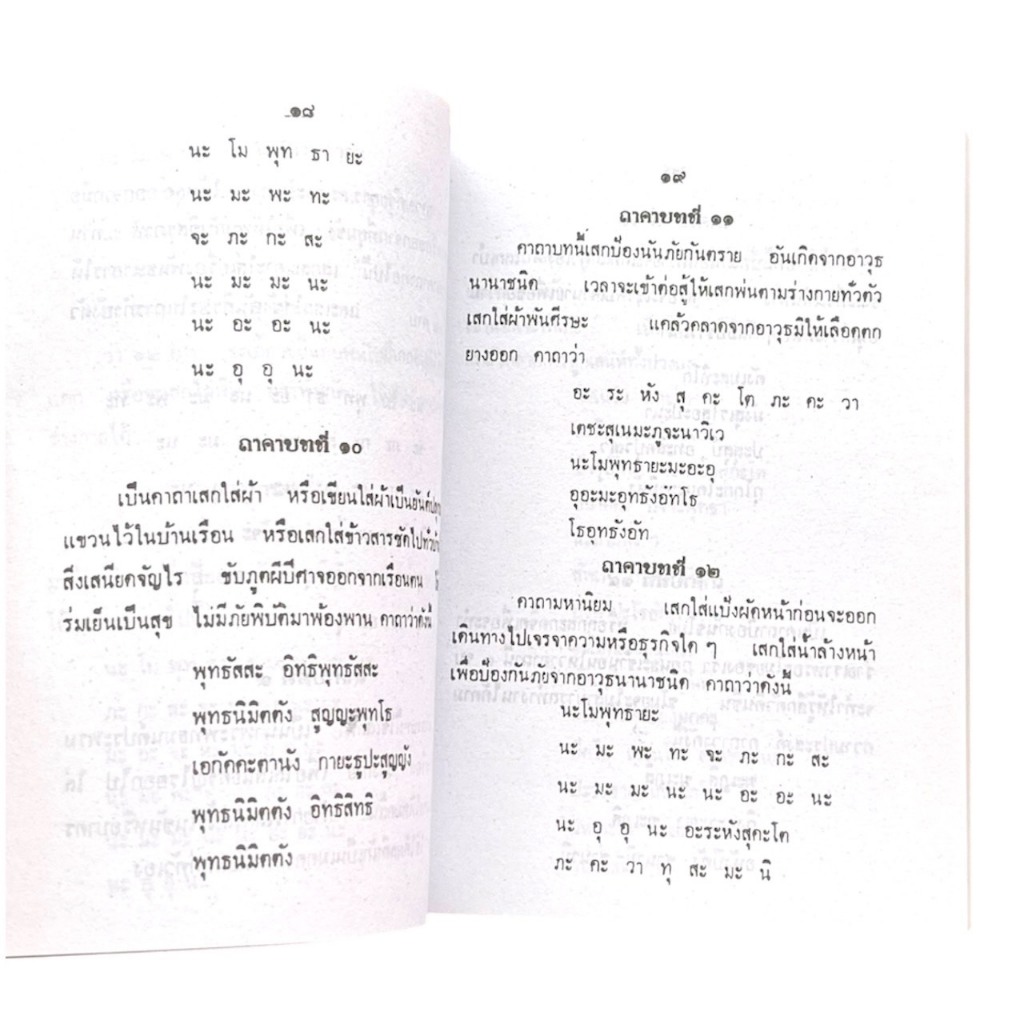 ๑๘
นะ โม พุท ธา ยะ
นะ มะ พะ ทะ
จะ ภะ กะ สะ
นะ มะ มะ นะ
นะ อะ อะ นะ
นะ อุ อุ นะ
ถาคาบทที่ ๑๐
เป็นคาถาเสกใส่ผ้า หรือเขียนใส่ผ้าเป็นยันต์
แขวนไว้ในบ้านเรือน หรือเสกใส่ข้าวสารซัดไปทั่ว
สิ่งเสนียดจัญไร ขับภูตผีปีศาจออกจากเรือนตน
ร่มเย็นเป็นสุข ไม่มีภัยพิบัติมาพ้องพาน คาถาว่าดังนี้
พุทธัสสะ อิทธิพุทธัสสะ
พุทธนิมิตตัง สูญญะพุทโธ
เอกัคคะตานัง กายะรูปะสูญญัง
พุทธนิมิตตัง อิทธิสิทธิ
พุทธนิมิตตัง
๑๙
ถาคาบทที่ ๑๑
คาถาบทนี้เสกป้องนันภัยกันตราย อันเกิดจากอาวุธ
นานาชนิด เวลาจะเข้าต่อสู้ให้เสกพ่นตามร่างกายทั่วตัว
เสกใส่ผ้าพันศีรษะ แคล้วคลาดจากอาวุธมิให้เลือดตก
ยางออก คาถาว่า
อะ ระ หัง สุ คะ โต ภะ คะ วา
เตชะสุเนมะภูจะนาวิเว
นะโมพุทธายะมะอะอุ
อุอะมะอุทธังอัทโธ
โธอุทธังอัท
ถาคาบทที่ ๑๒
คาถามหานิยม เสกใส่แป้งผัดหน้าก่อนจะออก
เดินทางไปเจรจาความหรือธุรกิจใด ๆ เสกใส่น้ำล้างหน้า
เพื่อป้องกันภัยจากอาวุธนานาชนิด คาถาว่าดังนี้
นะโมพุทธายะ
นะ มะ พะ ทะ จะ ภะ กะ สะ
นะ มะ มะ นะ นะ อะ อะ นะ
นะ อุ อุ นะ อะระหังสุคะโต
ภะ คะ วา ทุ สะ มะ นิ